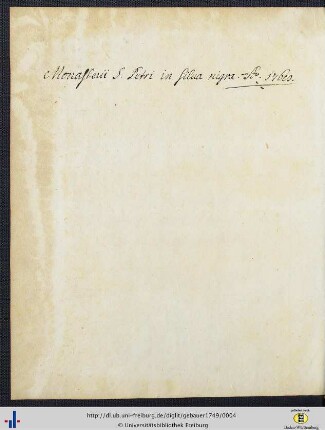 Monasterii S. Petri in silva nigra. Ao. 1760.
http://dl.ub.uni-freiburg.de/diglit/gebauer1749/0004
© Universitätsbibliothek Freiburg